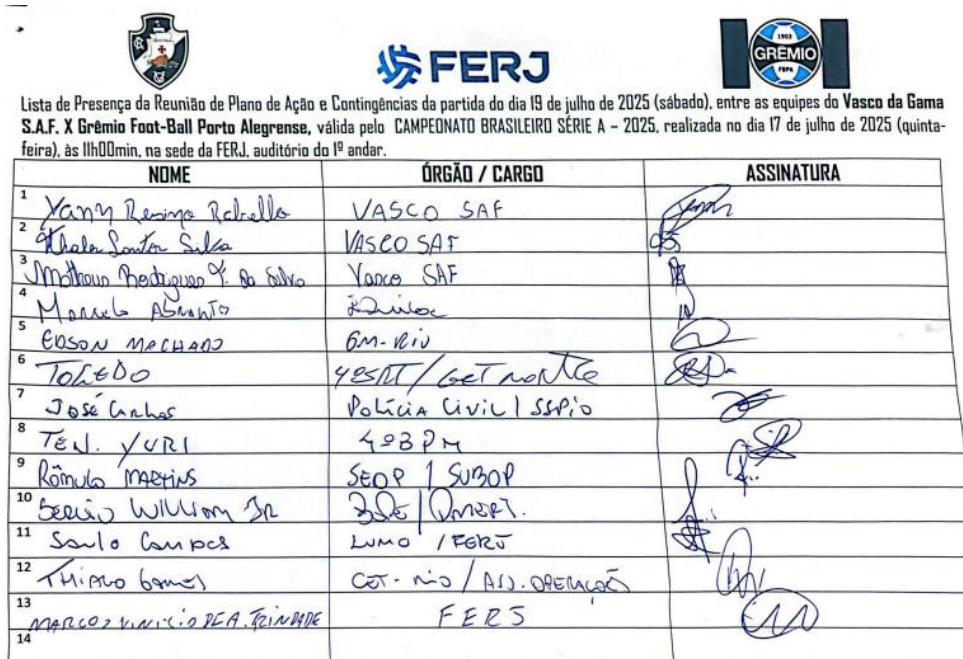 FERJ
1903
GRÊMIO
FBPA
Lista de Presença da Reunião de Plano de Ação e Contingências da partida do dia 19 de julho de 2025 (sábado), entre as equipes do Vasco da Gama
S.A.F. X Grêmio Foot-Ball Porto Alegrense, válida pelo CAMPEONATO BRASILEIRO SÉRIE A – 2025, realizada no dia 17 de julho de 2025 (quinta-
feira), às 11h00min, na sede da FERJ, auditório do 1º andar.
NOME ÓRGÃO / CARGO ASSINATURA
1 Yann Rebello VASCO SAF
2 Santos Silva VASCO SAF
3 Matheus Rodrigues da Silva Vasco SAF
4 Marcelo
5 EDSON MACHADO GM-RIO
6 TOLEDO GET NORTE
7 José Carlos Polícia Civil / SSPIO
8 TEN. YURI 4º BPM
9 Rômulo MARTINS SEOP / SUBOP
10 Sergio William Jr
11 Saulo Campos / FERJ
12 THIAGO Gomes CET-RIO / ASS. OPERAÇÃO
13 MARCOS VINICIO DE A. TRINDADE FERJ
14